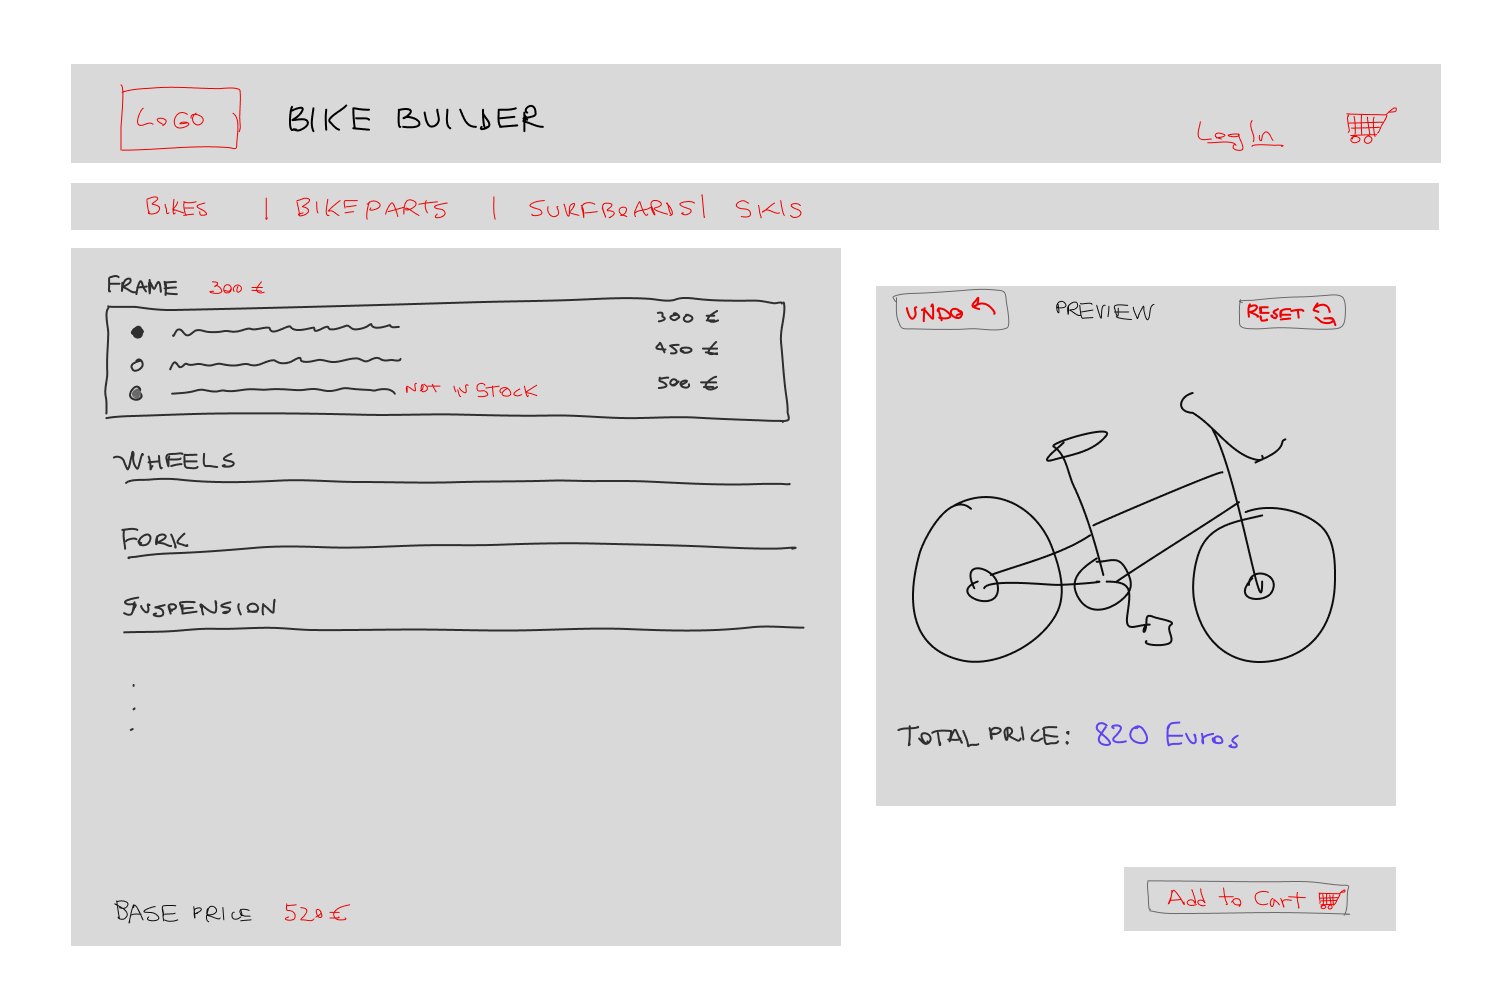 LOGO
BIKE BUILDER
Log In
BIKES | BIKEPARTS | SURFBOARDS | SKIS
FRAME 300 €
300 €
450 €
NOT IN STOCK 500 €
WHEELS
FORK
SUSPENSION
BASE PRICE 520 €
UNDO PREVIEW RESET
TOTAL PRICE: 820 Euros
Add to Cart